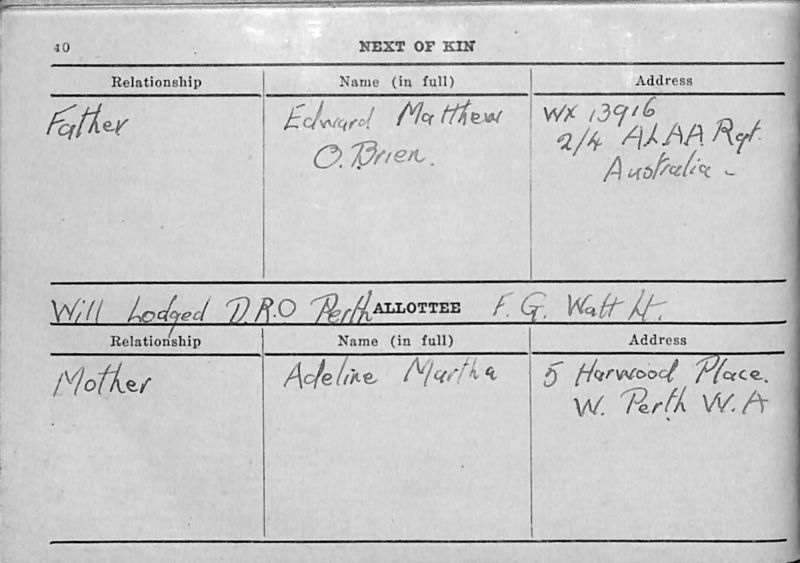 40 NEXT OF KIN
Relationship Name (in full) Address
Father Edward Matthew WX 13916
O.Brien. 2/4 A.L.A.A. Rgt.
Australia -
Will Lodged D.R.O Perth ALLOTTEE F. G. Watt Lt.
Relationship Name (in full) Address
Mother Adeline Martha 5 Harwood Place.
W. Perth W.A